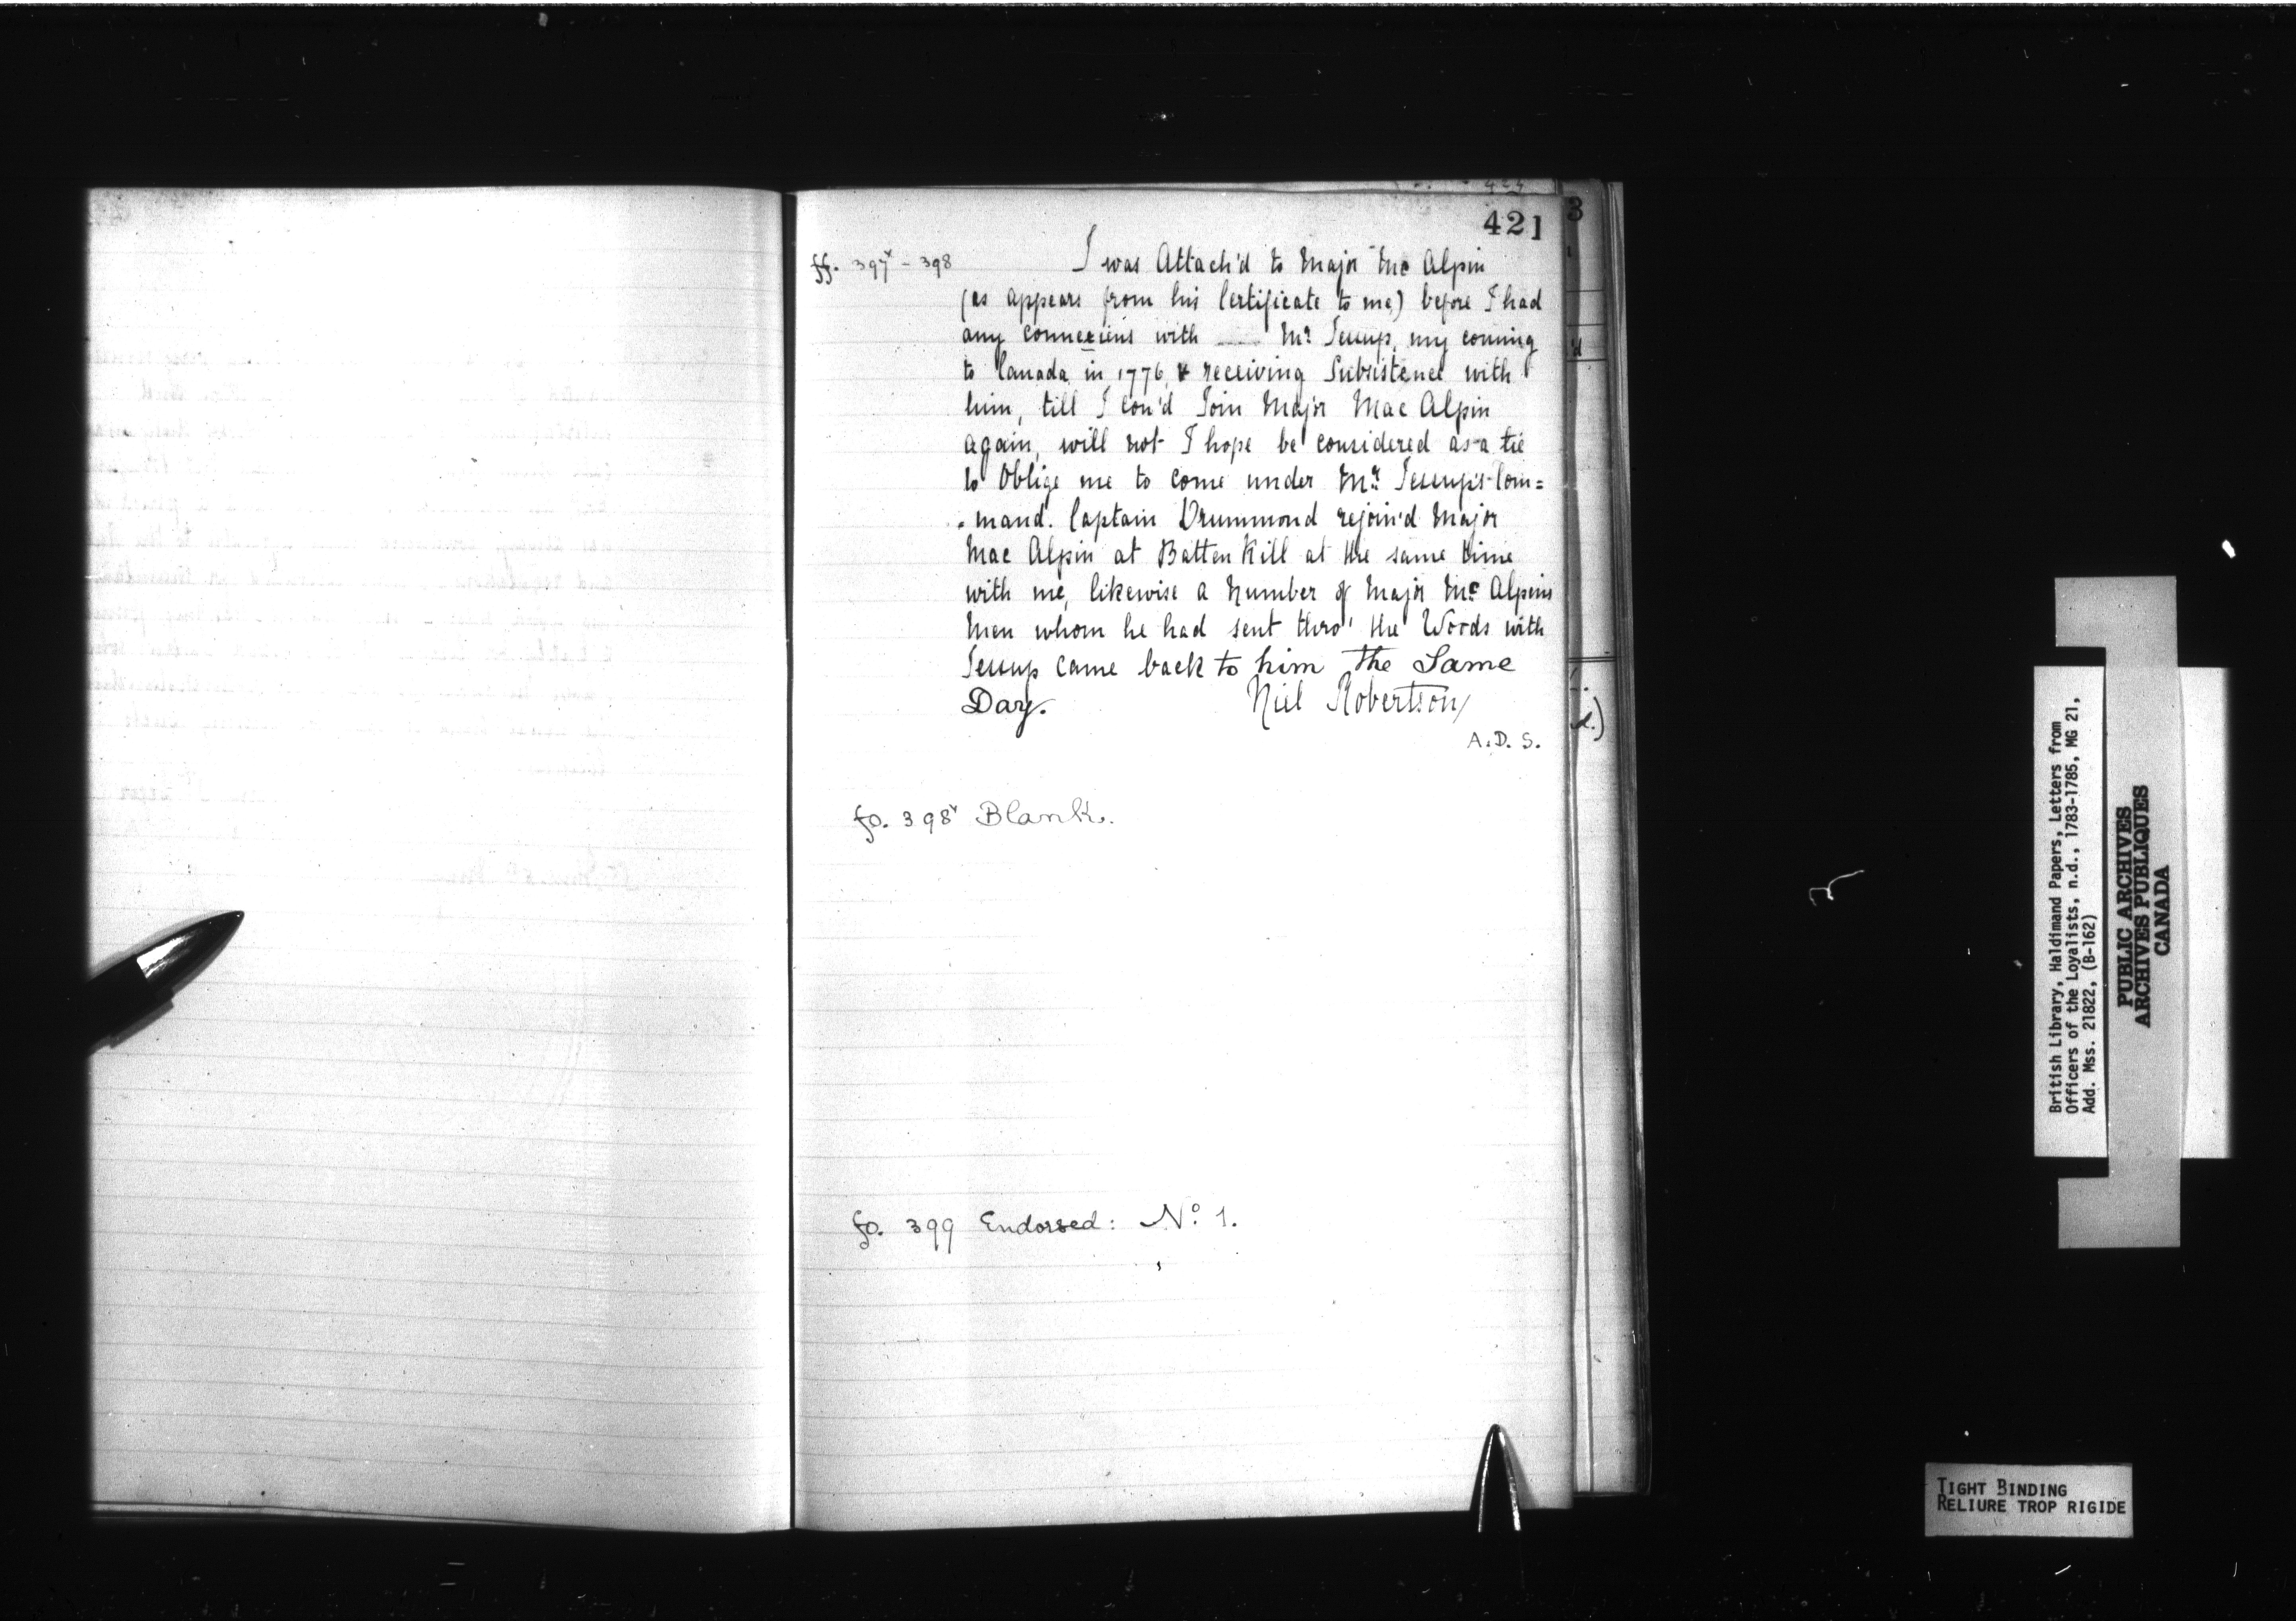 421
ff. 397v - 398
I was Attach'd to Major Mc Alpin
(as appears from his Certificate to me,) before I had
any connexions with Mr. Jessup, my coming
to Canada in 1776, & receiving Subsistence with
him, till I cou'd Join Major Mac Alpin
again, will not I hope be considered as a tie
to Oblige me to come under Mr. Jessup's Com=
mand. Captain Drummond rejoin'd Major
Mac Alpin at Batten Kill at the same time
with me, likewise a Number of Major Mc Alpins
Men whom he had sent thro' the Woods with
Jessup came back to him the Same
Day. Niel Robertson,
A.D.S.
fo. 398v Blank.
fo. 399 Endorsed: No. 1.
British Library, Haldimand Papers, Letters from
Officers of the Loyalists, n.d., 1783-1785, MG 21,
Add. Mss. 21822, (B-162)
PUBLIC ARCHIVES
ARCHIVES PUBLIQUES
CANADA
TIGHT BINDING
RELIURE TROP RIGIDE